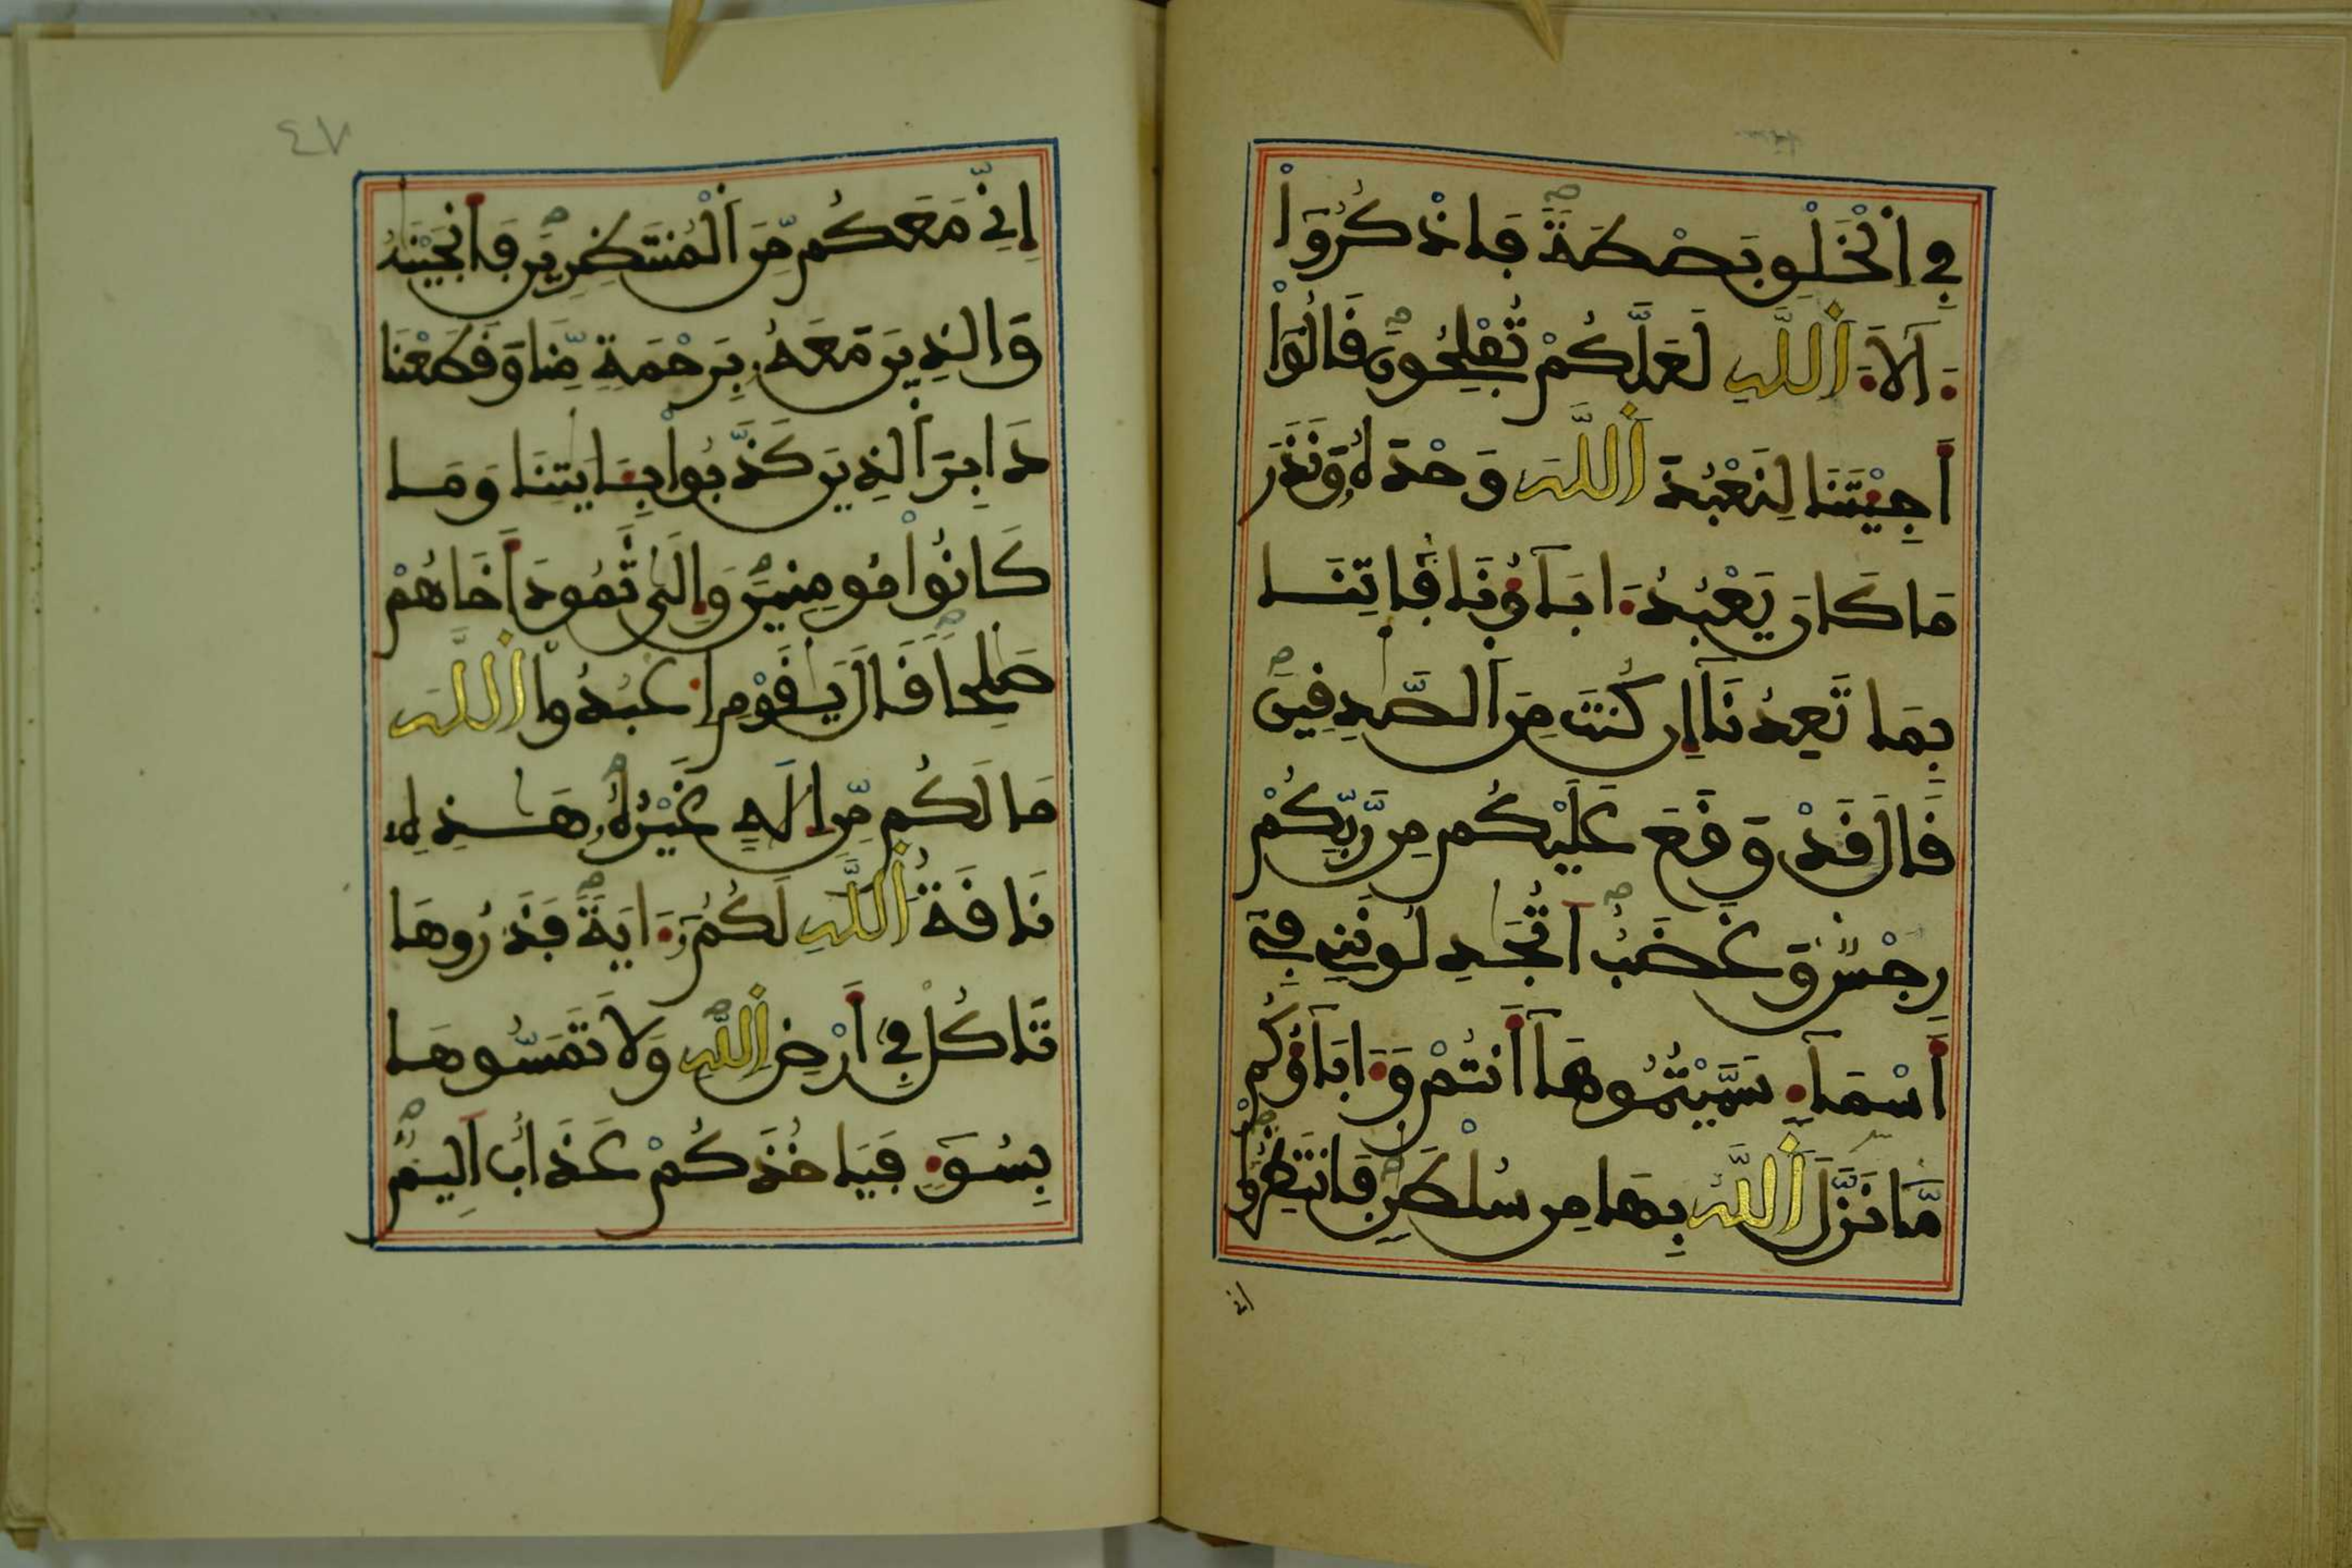 فِي اِ۬لْخَلْقِ بَصْطَةٗ فَاذْكُرُوٓاْ
ءَالَآءَ اَ۬للَّهِ لَعَلَّكُمْ تُفْلِحُونَ قَالُوٓاْ
أَجِئْتَنَا لِنَعْبُدَ اَ۬للَّهَ وَحْدَهُۥ وَنَذَرَ
مَا كَانَ يَعْبُدُ ءَابَآؤُنَا فَاتِنَا
بِمَا تَعِدُنَآ إِن كُنتَ مِنَ اَ۬لصَّٰدِقِينَ
قَالَ قَدْ وَقَعَ عَلَيْكُم مِّن رَّبِّكُمْ
رِجْسٞ وَغَضَبٌ اَتُجَٰدِلُونَنِے فِےٓ
أَسْمَآءٖ سَمَّيْتُمُوهَآ أَنتُمْ وَءَابَآؤُكُم
مَّا نَزَّلَ اَ۬للَّهُ بِهَا مِن سُلْطَٰنٖ فَانتَظِرُوٓاْ
إنے
٤٧
إِنِّے مَعَكُم مِّنَ اَ۬لْمُنتَظِرِينَ فَأَنجَيْنَٰهُ
وَالذِينَ مَعَهُۥ بِرَحْمَةٖ مِّنَّا وَقَطَعْنَا
دَابِرَ اَ۬لذِينَ كَذَّبُواْ بِـَٔايَٰتِنَا وَمَا
كَانُواْ مُومِنِينَ وَإِلَيٰ ثَمُودَ أَخَاهُمْ
صَٰلِحاٗ قَالَ يَٰقَوْمِ اِ۟عْبُدُواْ اُ۬للَّهَ
مَا لَكُم مِّنِ اِلَٰهٍ غَيْرُهُۥ هَٰذِهِۦ
نَاقَةُ اُ۬للَّهِ لَكُمُۥٓ ءَايَةٗ فَذَرُوهَا
تَاكُلْ فِےٓ أَرْضِ اِ۬للَّهِ وَلَا تَمَسُّوهَا
بِسُوٓءٖ فَيَاخُذَكُمْ عَذَابٌ اَلِيمٞ